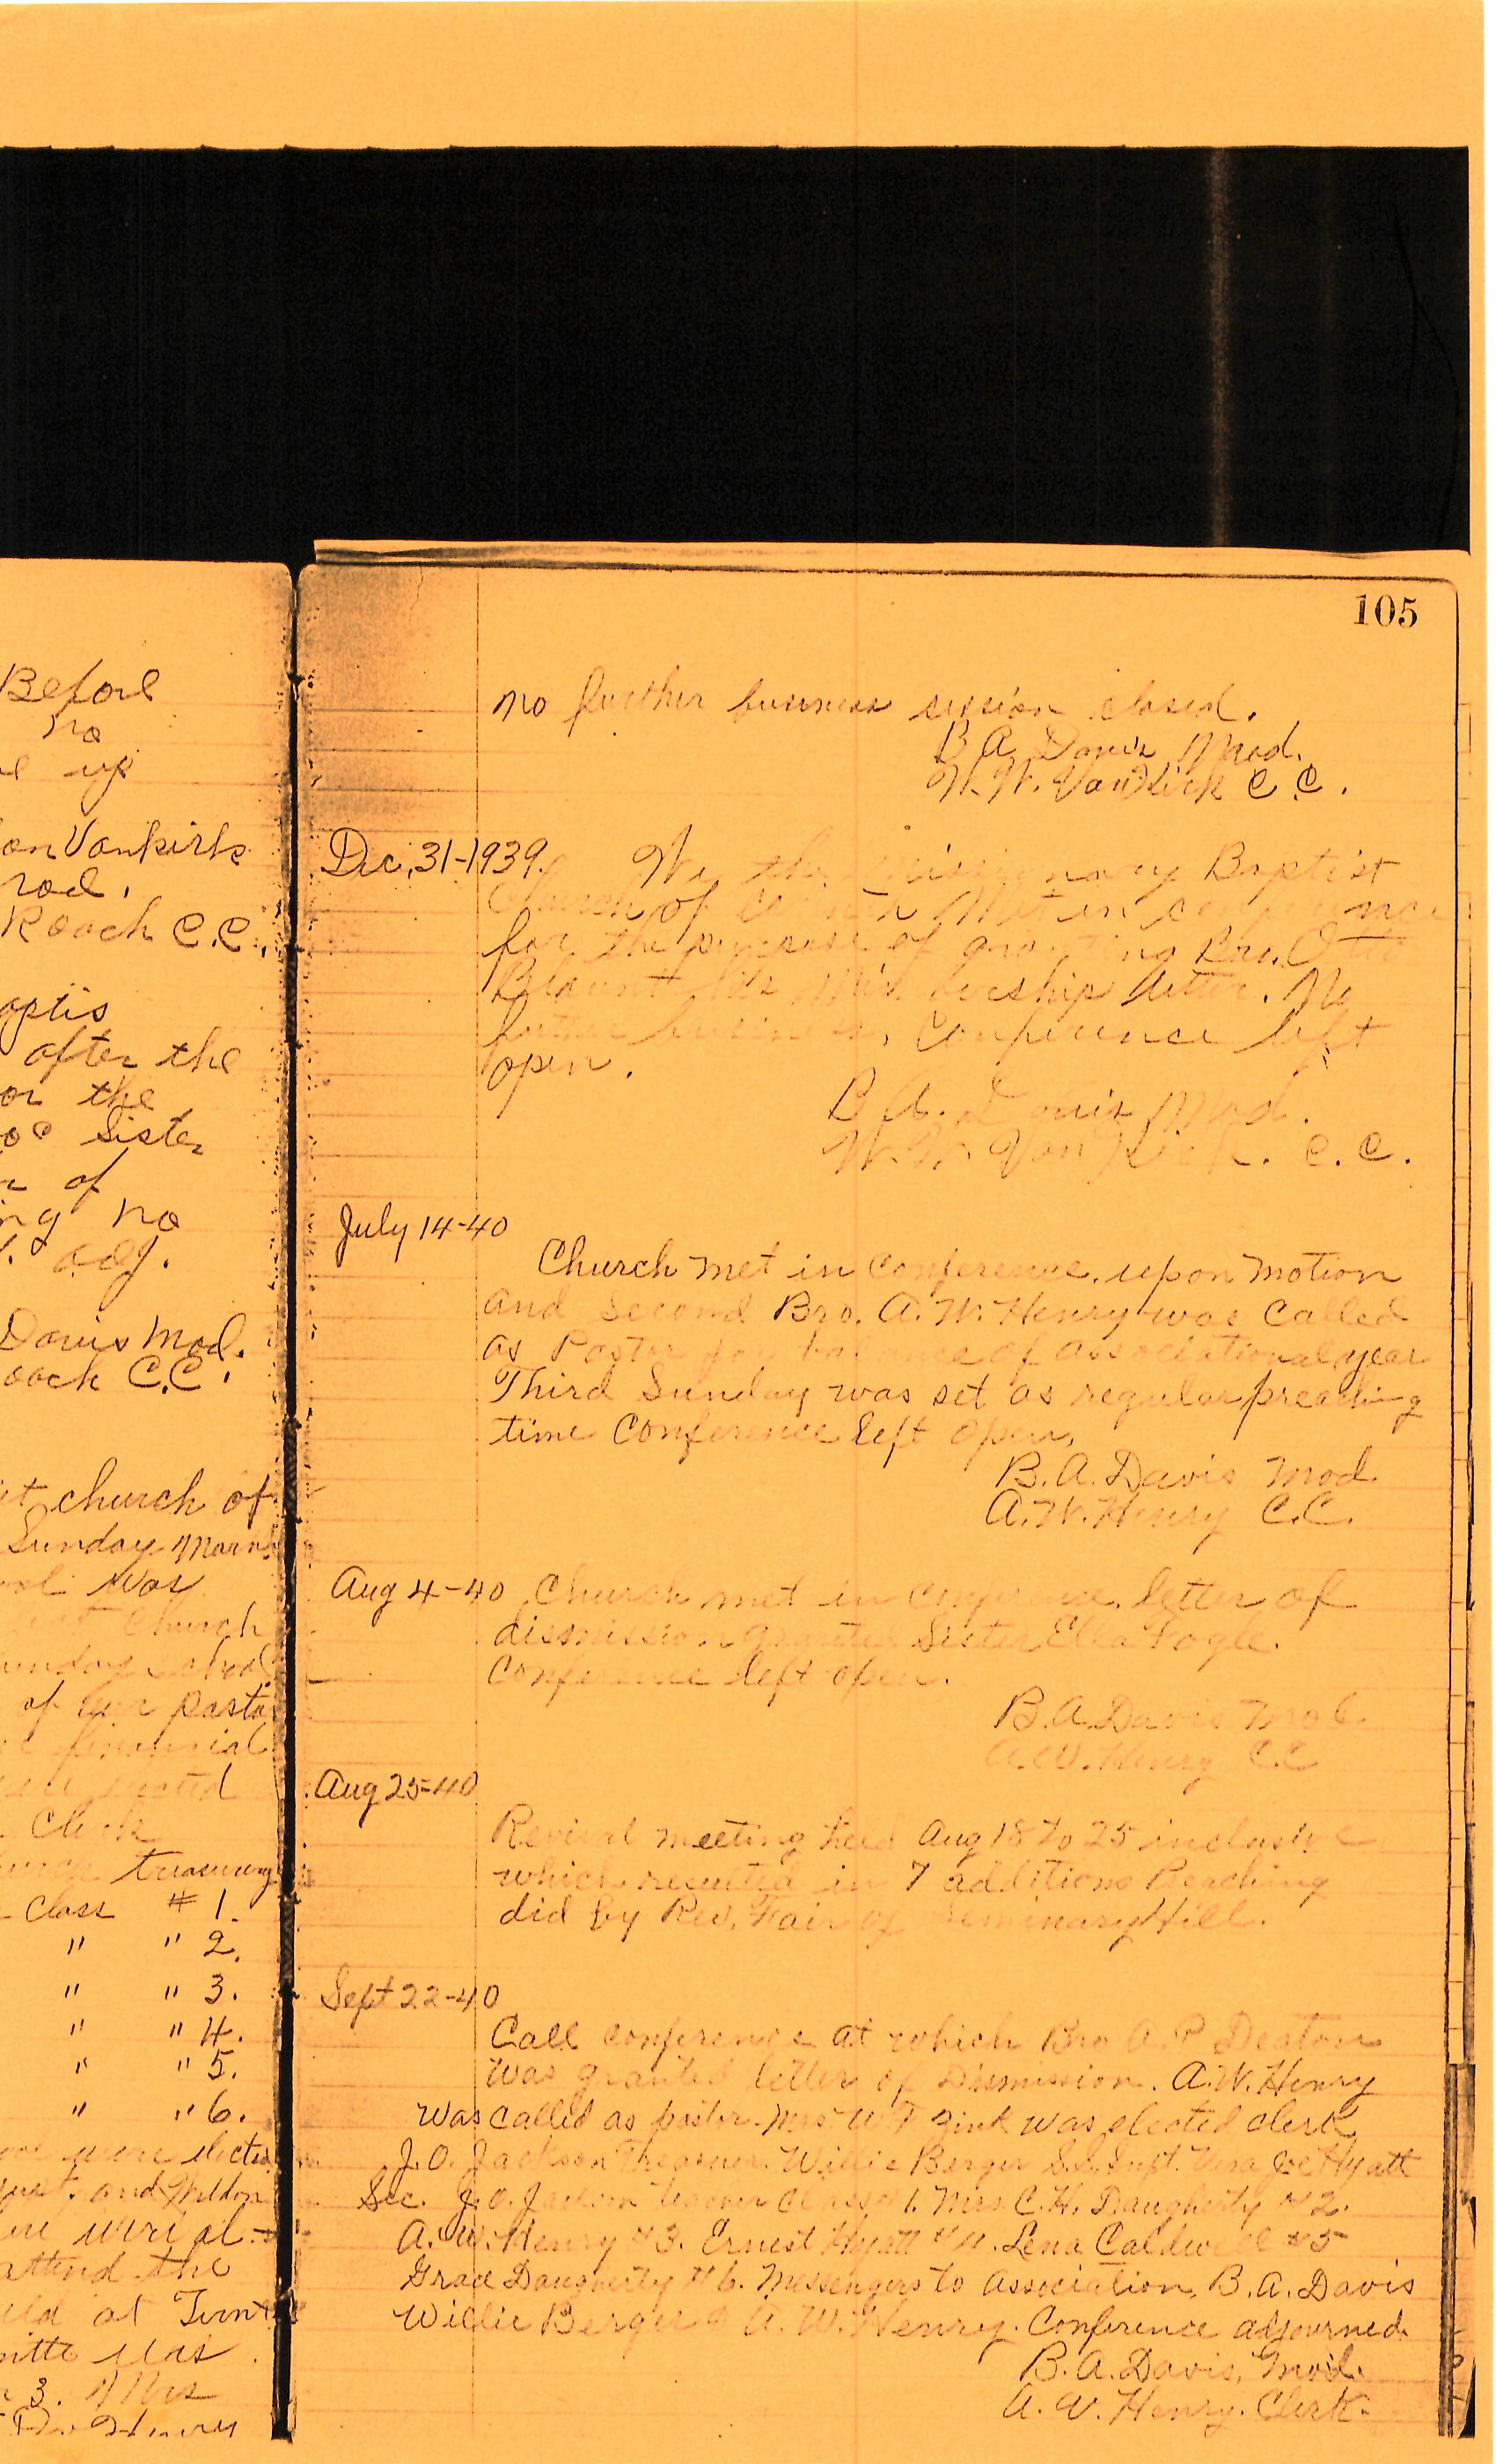 Before
no
up
Vankirk
Roach C.C.
after the
the
Sister
of
no
adj.
Davis Mod.
C.C.
church of
Sunday Morn
was
Church
of our pastor
financial
Clerk
treasury
Class # 1.
" " 2.
" " 3.
" " 4.
" " 5.
" " 6.
were
and Weldon
were
attend the
at
was
3. Mrs
105
no further business session closed.
B A Davis Mod.
W. W. VanKirk C C.
Dec. 31-1939. We the Missionary Baptist
Church of met in
for the purpose of granting Bro. Otto
Blount his membership letter. No
further business, Conference left
open.
B. A. Davis Mod.
W. W. VanKirk. C. C.
July 14-40
Church met in conference, upon motion
and second Bro. A. W. Henry was called
as Pastor for balance of associational year
Third Sunday was set as regular preaching
time Conference left open.
B. A. Davis Mod.
A. W. Henry C.C.
Aug 4-40 Church met in conference. letter of
dismission granted Sister Ella Fogle.
Conference left open.
B. A. Davis Mod.
A. W. Henry C.C
Aug 25-40
Revival meeting held Aug 18 to 25 inclusive
which resulted in 7 additions Preaching
did by Rev. Fair of Seminary Hill.
Sept 22-40
Call conference at which Bro A. P. Deaton
was granted letter of Dismission. A. W. Henry
was called as pastor. Mrs W F Zink was elected clerk
J. O. Jackson Treasurer. Willie Berger S.S. Supt. Vera Joe Hyatt
Sec. J. O. Jackson Class # 1. Mrs. C. H. Daugherty # 2.
A. W. Henry # 3. Ernest Hyatt # 4. Lena Caldwell # 5
Grace Daugherty # 6. Messengers to Association, B. A. Davis
Willie Berger & A. W. Henry. Conference adjourned.
B. A. Davis, Mod.
A. W. Henry. Clerk.